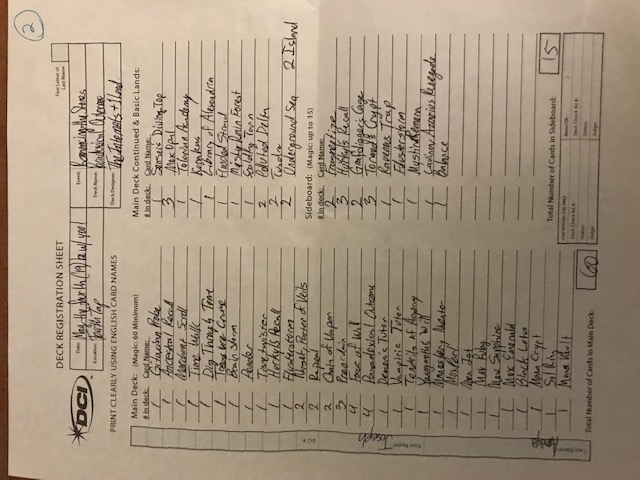 2
DECK REGISTRATION SHEET
First Letter of
Last Name
DCI
Date: May the fourth (19) be w/ you!
Event: Romancing the Stones
Location: Fourth Tap
Deck Name: Paradoxical Outcome
Deck Designer: The Internets + 1 Land
PRINT CLEARLY USING ENGLISH CARD NAMES
Main Deck: (Magic: 60 Minimum)
# in deck: Card Name:
1 Gitaxian Probe
1 Ancestral Recall
1 Merchant Scroll
1 Time Walk
1 Dig Through Time
1 Treasure Cruise
1 Brain Storm
1 Ponder
1 Timetwister
1 Hurkyl's Recall
1 Flusterstorm
2 Narset, Parter of Veils
2 Repeal
2 Chain of Vapor
3 Preordain
4 Force of Will
4 Paradoxical Outcome
1 Demonic Tutor
1 Vampiric Tutor
1 Tendrils of Agony
1 Yawgmoth's Will
1 Monastery Mentor
1 Mox Perl
1 Mox Jet
1 Mox Ruby
1 Mox Sapphire
1 Mox Emerald
1 Black Lotus
1 Mana Crypt
1 Sol Ring
1 Mana Vault
Total Number of Cards in Main Deck: 60
Main Deck Continued & Basic Lands:
# in deck: Card Name:
1 Senseis Divining Top
3 Mox Opal
1 Tolarian Academy
1 Karakas
1 Library of Alexandria
1 Flooded Strand
1 Misty Rain Forest
1 Scalding Tarn
2 Polluted Delta
2 Tundra
2 Underground Sea 2 Island
Sideboard: (Magic: up to 15)
# in deck: Card Name:
2 Fragmentize
3 Hurkyls Recall
2 Grafdigger's Cage
3 Tormod's Crypt
1 Ravenous Trap
1 Flusterstorm
1 Mystic Remora
1 Lavinia, Azorius Renegade
1 Balance
Total Number of Cards in Sideboard: 15
FOR OFFICIAL USE ONLY
Main/SB:
Deck Check Rd #:
Deck Check Rd #:
Status:
Status:
Judge:
Judge:
DCI #:
First Name: Joseph
Last Name: